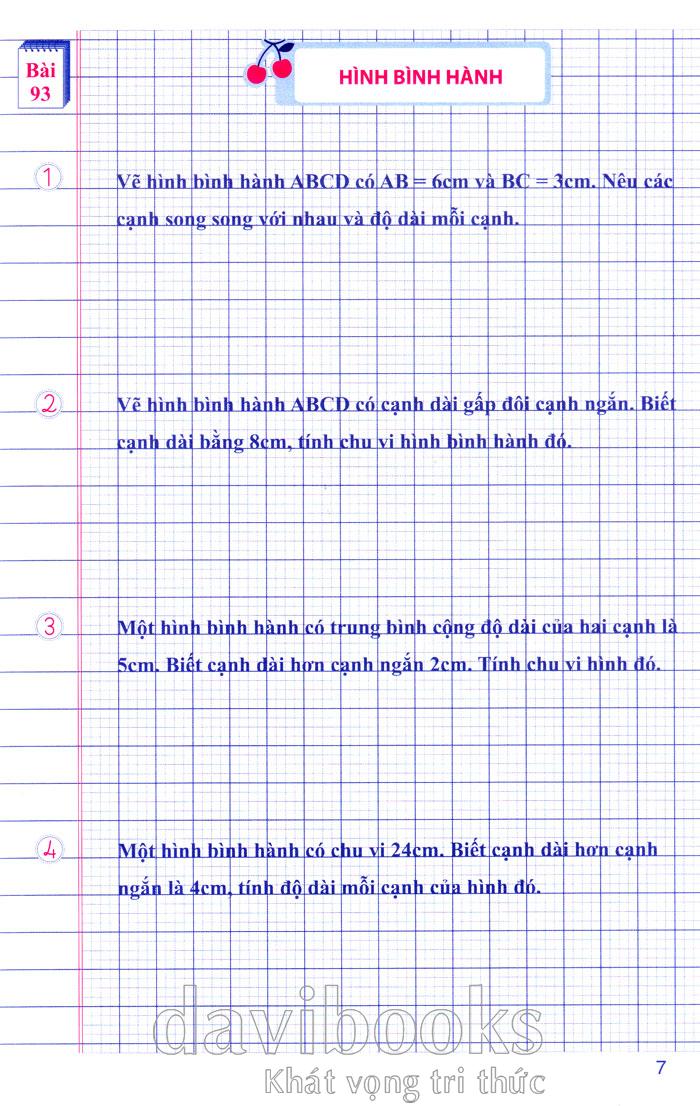 Bài
93
HÌNH BÌNH HÀNH
1
Vẽ hình bình hành ABCD có AB = 6cm và BC = 3cm. Nêu các
cạnh song song với nhau và độ dài mỗi cạnh.
2
Vẽ hình bình hành ABCD có cạnh dài gấp đôi cạnh ngắn. Biết
cạnh dài bằng 8cm, tính chu vi hình bình hành đó.
3
Một hình bình hành có trung bình cộng độ dài của hai cạnh là
5cm. Biết cạnh dài hơn cạnh ngắn 2cm. Tính chu vi hình đó.
4
Một hình bình hành có chu vi 24cm. Biết cạnh dài hơn cạnh
ngắn là 4cm, tính độ dài mỗi cạnh của hình đó.
davibooks
Khát vọng tri thức
7